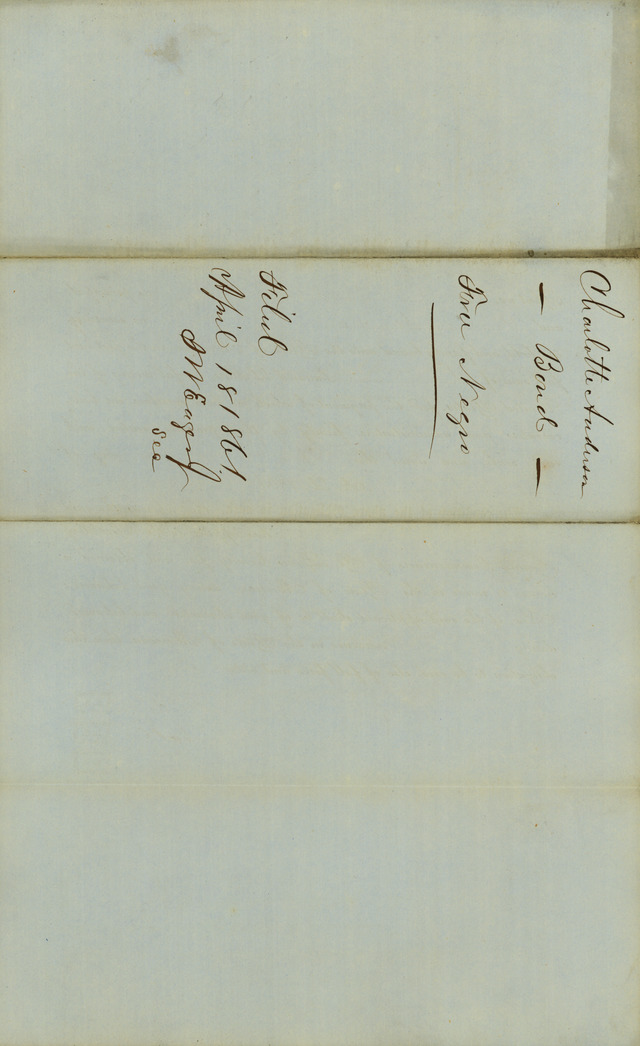 Charlotte Anderson
— Bond —
Free Negro
Filed
April 18 1861,